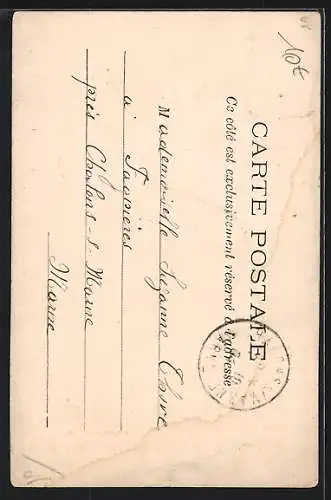 CARTE POSTALE
Ce côté est exclusivement réservé à l'adresse
Mademoiselle
à Favières
près Châlons-s-Marne
Marne
10€